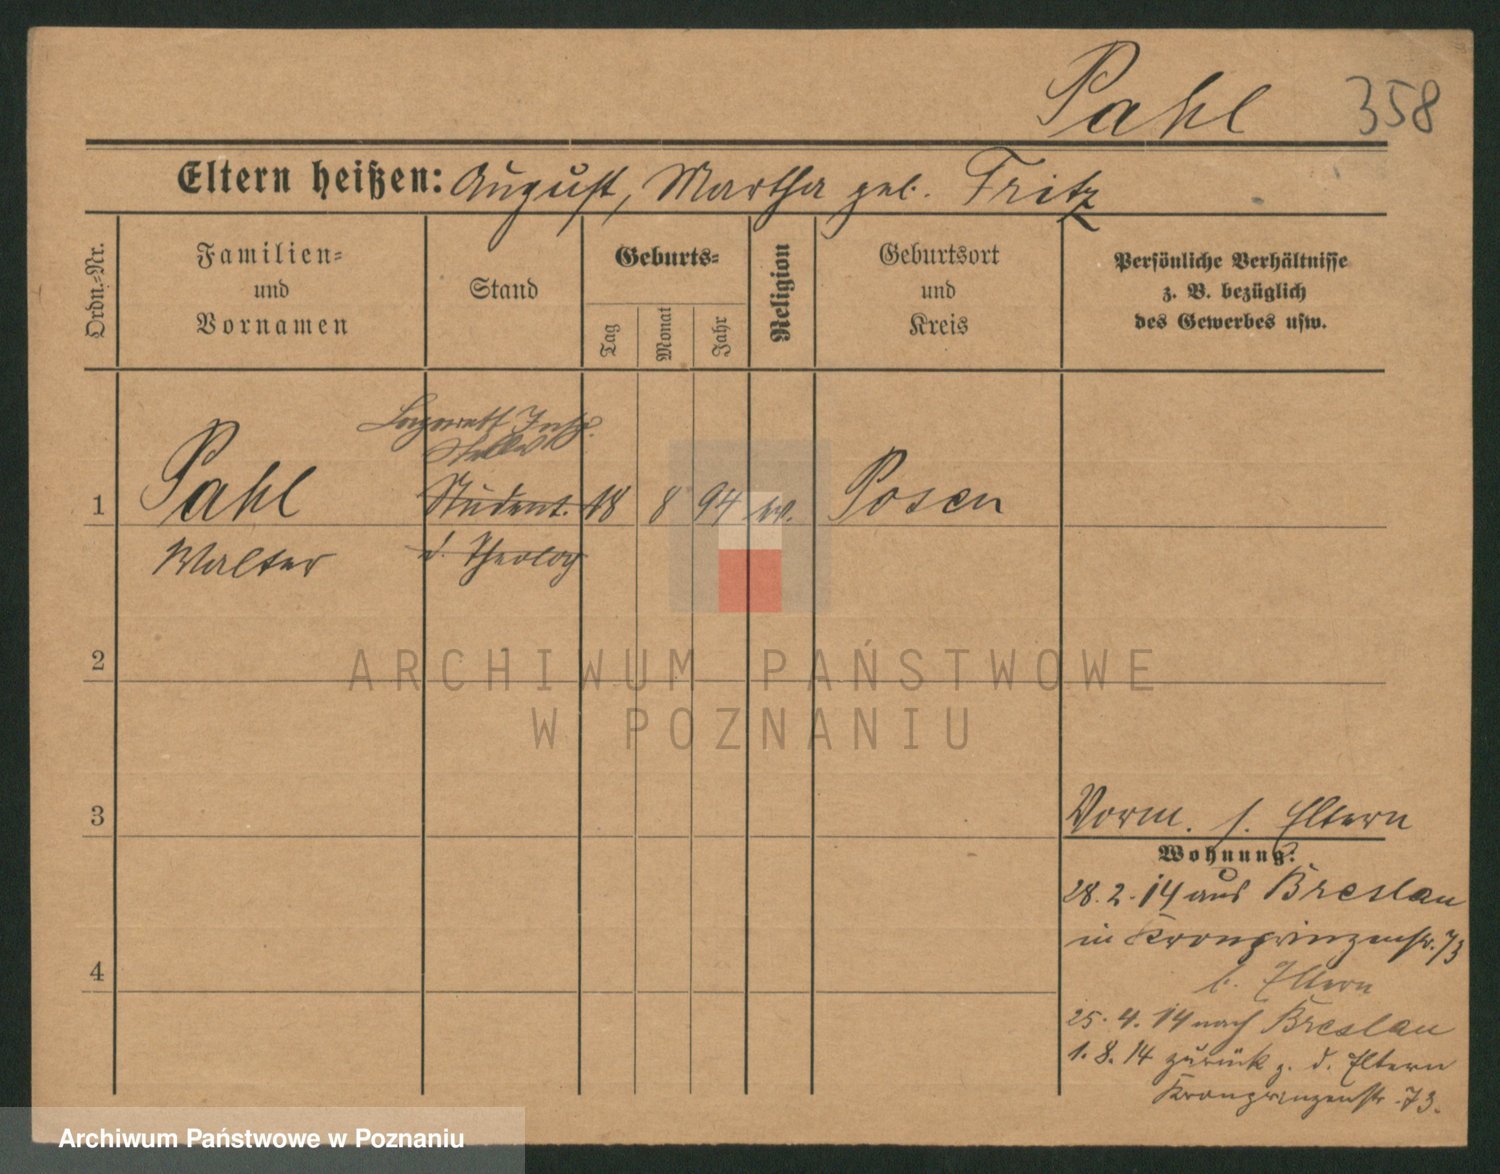 Pahl 358
Eltern heißen: August, Martha geb. Fritz
Ordn.-Nr.
Familien-
und
Vornamen
Stand
Geburts-
Tag
Monat
Jahr
Religion
Geburtsort
und
Kreis
Persönliche Verhältnisse
z. B. bezüglich
des Gewerbes usw.
Lazarett Insp.
1 Pahl Student. 18 8 94 ev. Posen
Walter d. Theolog
2
ARCHIWUM PAŃSTWOWE
W POZNANIU
3
Vorm. s. Eltern
Wohnung:
28.2.14 aus Breslau
in Kronprinzenstr. 73
b. Eltern
4
25.4.14 nach Breslau
1.8.14 zurück z. d. Eltern
Kronprinzenstr. 73.
Archiwum Państwowe w Poznaniu